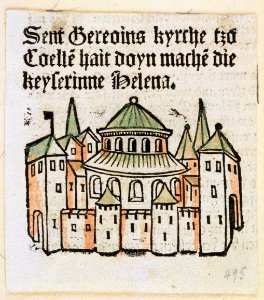 Sent Gereoins kyrche tzo
Coellē hait doyn machē die
keyserinne Helena.
495